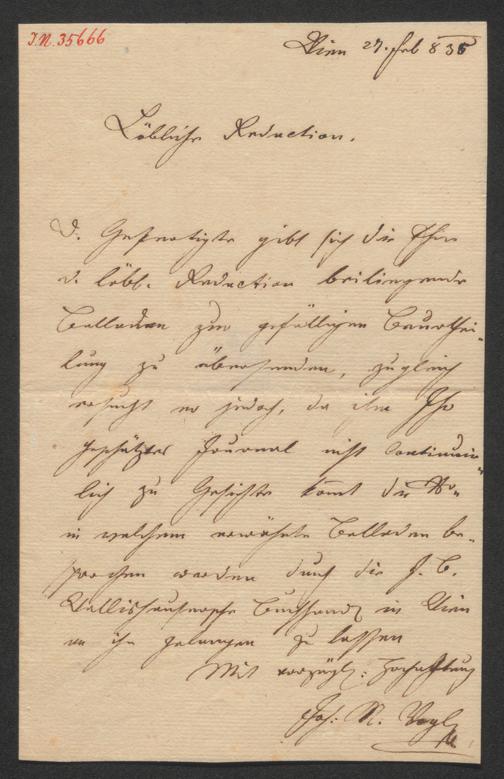 I.N. 35666
Wien 27. Feb 835
Löbliche Redaction.
D. Gefertigte gibt sich die Ehre
d. löbl. Redaction beiliegende
Balladen zur gefälligen Beurthei-
lung zu übersenden, zugleich
ersucht er jedoch, da ihm Ihr
geschätztes Journal nicht continuir-
lich zu Gesichte kömt die No
in welchem erwähnte Balladen be-
sprochen werden durch die J. B.
Wallishausersche Buchhandl in Wien
an ihn gelangen zu lassen
Mit vorzügl: Hochachtung
Joh. N. Vogl